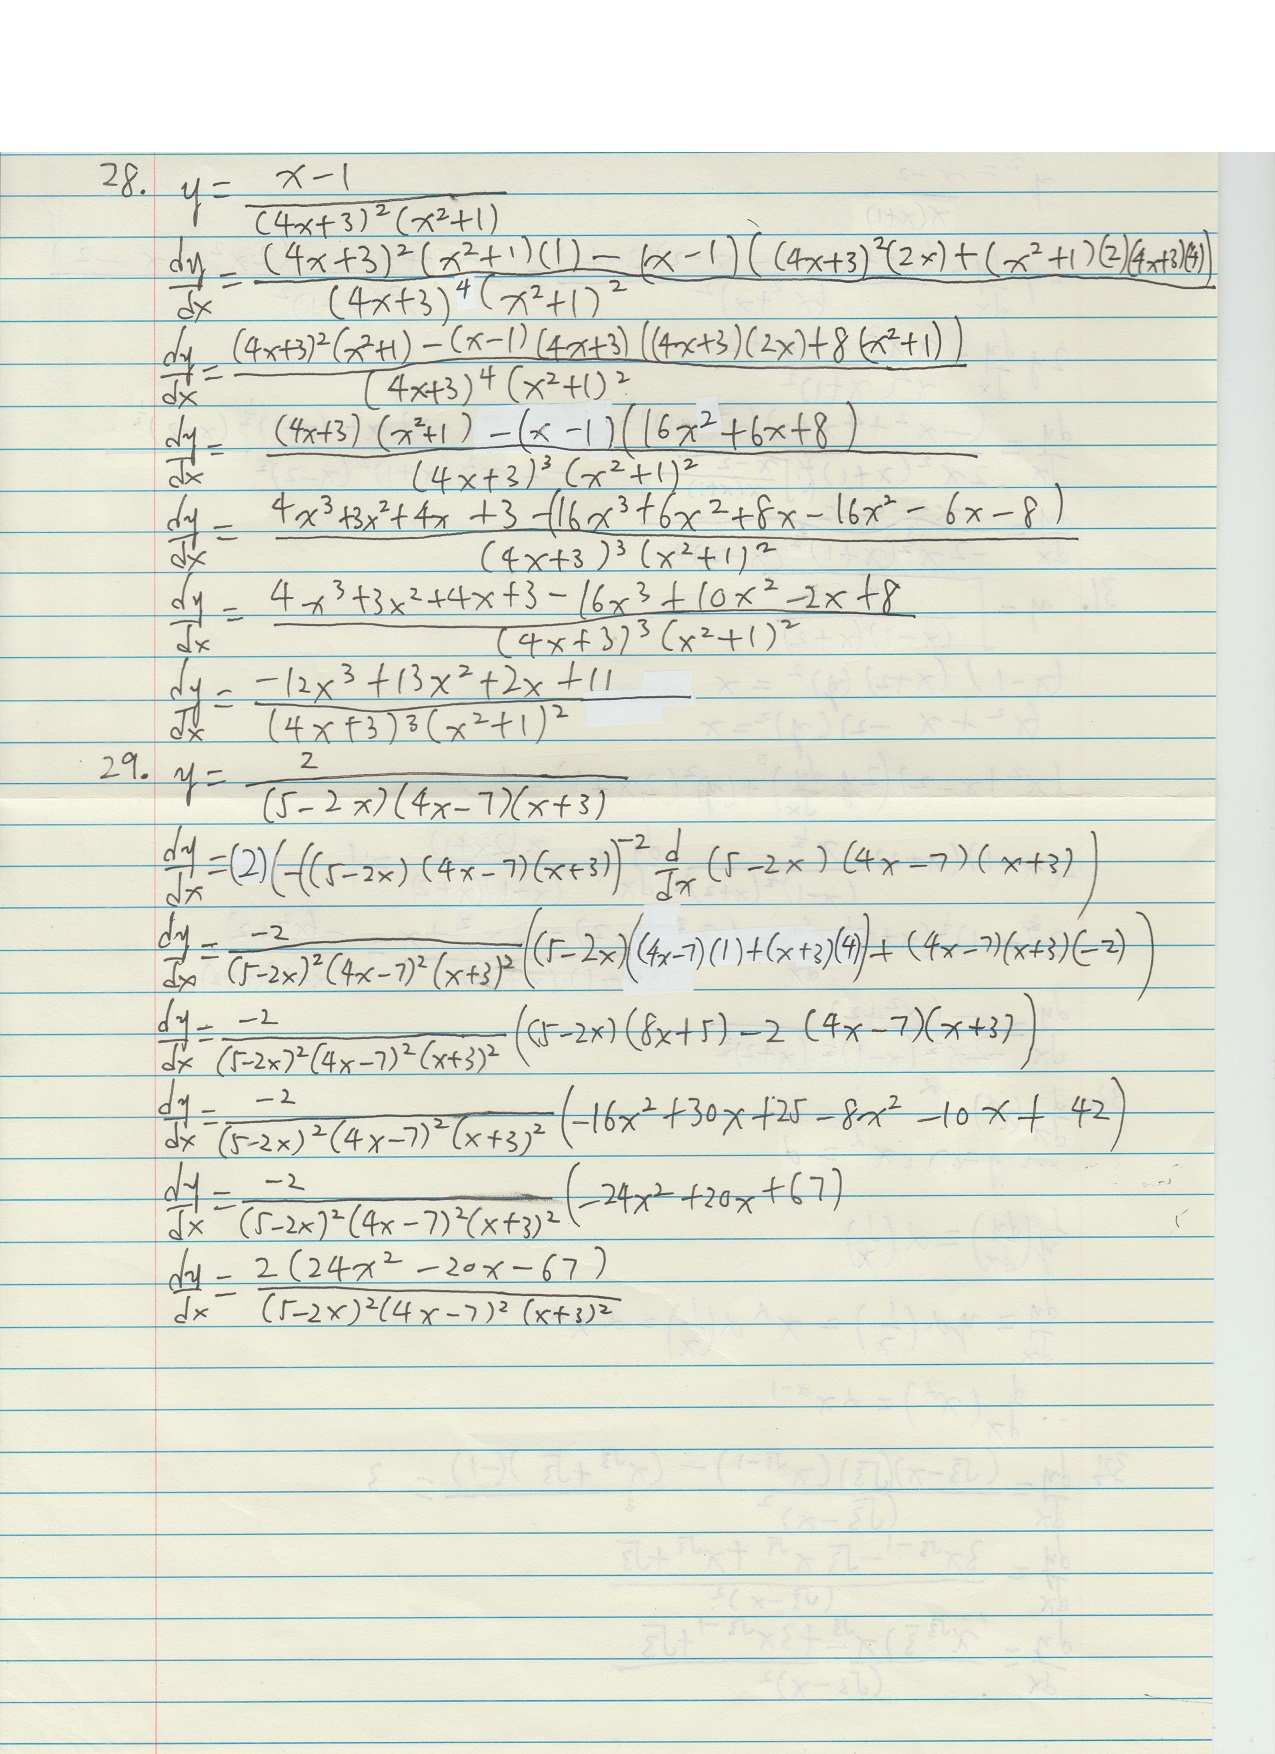 28. y = (x-1)/((4x+3)²(x²+1))
dy/dx = ((4x+3)²(x²+1)(1) - (x-1)((4x+3)²(2x) + (x²+1)(2)(4x+3)(4)))/((4x+3)⁴(x²+1)²)
dy/dx = ((4x+3)²(x²+1) - (x-1)(4x+3)((4x+3)(2x) + 8(x²+1)))/((4x+3)⁴(x²+1)²)
dy/dx = ((4x+3)(x²+1) - (x-1)(16x²+6x+8))/((4x+3)³(x²+1)²)
dy/dx = (4x³+3x²+4x+3-(16x³+6x²+8x-16x²-6x-8))/((4x+3)³(x²+1)²)
dy/dx = (4x³+3x²+4x+3-16x³+10x²-2x+8)/((4x+3)³(x²+1)²)
dy/dx = (-12x³+13x²+2x+11)/((4x+3)³(x²+1)²)
29. y = 2/((5-2x)(4x-7)(x+3))
dy/dx = (2)(-((5-2x)(4x-7)(x+3))⁻² d/dx (5-2x)(4x-7)(x+3))
dy/dx = -2/((5-2x)²(4x-7)²(x+3)²) ((5-2x)((4x-7)(1)+(x+3)(4)) + (4x-7)(x+3)(-2))
dy/dx = -2/((5-2x)²(4x-7)²(x+3)²) ((5-2x)(8x+5) - 2(4x-7)(x+3))
dy/dx = -2/((5-2x)²(4x-7)²(x+3)²) (-16x²+30x+25-8x²-10x+42)
dy/dx = -2/((5-2x)²(4x-7)²(x+3)²) (-24x²+20x+67)
dy/dx = 2(24x²-20x-67)/((5-2x)²(4x-7)²(x+3)²)